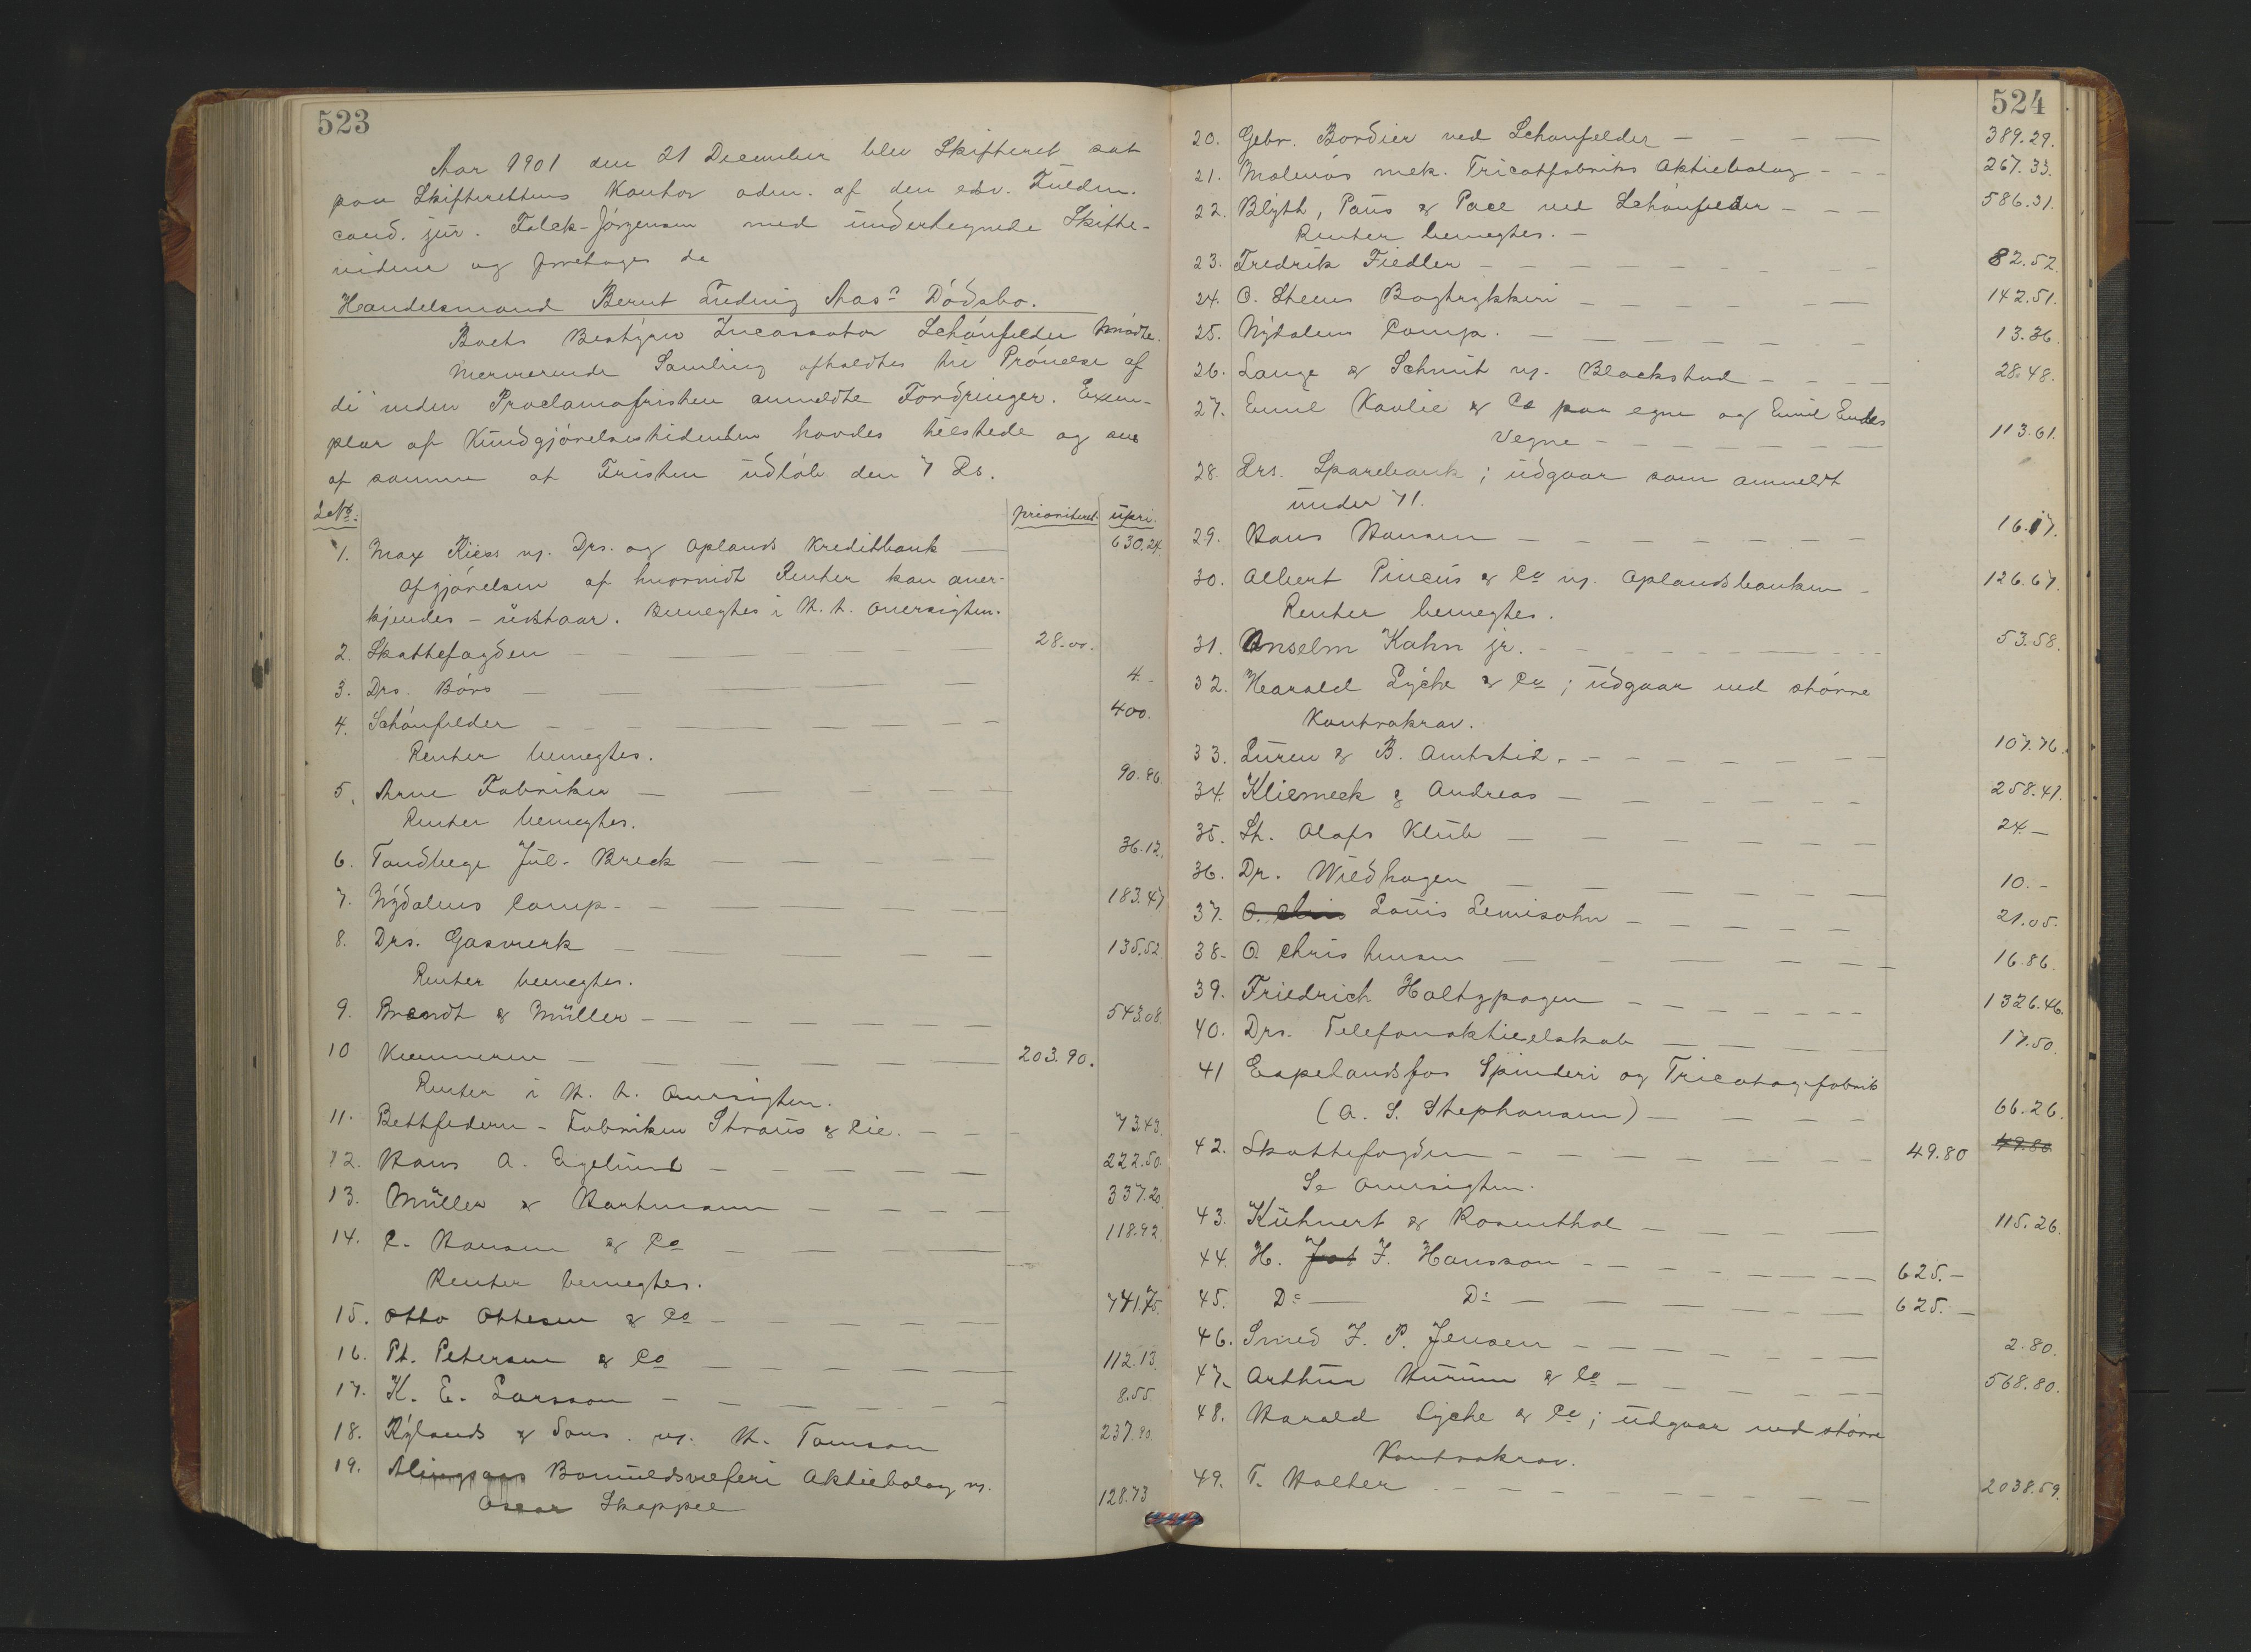 523
Aar 1901 den 21 December blev Skifteret sat
paa Skifterettens Kontor adm. af den edsv. Fuldm.
cand. jur. Falck-Jørgensen med undertegnede Skifte-
vidne og foretoges da
Handelsmand Bernt Ludvig Aas's Dødsbo.
Boets Bestyrer Incassator Schönfelder mødte.
Nærværende Samling afholdtes til Prøvelse af
de inden Proclamafristen anmeldte Fordringer. Exem-
plar af Kundgjørelsestidenden havdes tilstede og saaes
af samme at Fristen udløb den 7 Ds.
LNo: prioriteret. upri.
1. Max Riess v. Drs. og Oplands Kreditbank — 630.24.
Afgjørelsen af hvorvidt Renter kan aner-
kjendes – udstaar. Benegtes i H. t. Oversigten.
2. Skattefogden — 28.00.
3. Drs. Børs — 4.-
4. Schönfelder — 400.
Renter benegtes.
5. Arne Fabriker — 90.86
Renter benegtes.
6. Tandlæge Jul. Breck — 36.12.
7. Nydalens Comp. — 183.47
8. Drs. Gasverk — 135.52
Renter benegtes.
9. Brandt & Müller — 543.08.
10 Kæmneren — 203.90.
Renter i H. t. Oversigten.
11. Bettfedern-Fabriken Straus & Cie. — 73.43.
12. Hans A. Egelund — 222.50.
13. Müller & Hartmann — 337.20.
14. C. Hansen & Co — 118.92.
Renter benegtes.
15. Otto Ottesen & Co — 741.75.
16. Pt. Petersen & Co — 112.13.
17. K. E. Larsson — 8.55.
18. Rylands & Sons v. H. Tomson 237.90.
19. Alingsaas Bomuldsvæferi Aktiebolag v.
Oscar Skappel 128.73
524
20. Gebr. Bordier ved Schönfelder — 389.29.
21. Malmös mek. Tricotfabriks Aktiebolag — 267.33.
22. Blyth, Paus & Pace ved Schönfelder — 586.31.
Renter benegtes. —
23. Fredrik Fiedler — 82.52.
24. O. Steens Bogtrykkeri — 142.51.
25. Nydalens Comp. — 13.36.
26. Lange & Schmit v. Blackstad — 28.48.
27. Emil Kavlie & Co paa egne og Emil Endes
Vegne — 113.61.
28. Drs. Sparebank; udgaar som anmeldt
under 71.
29. Hans Hansen — 16.17.
30. Albert Pincus & Co v. Oplandsbanken — 126.67.
Renter benegtes.
31. Anselm Kahn jr. — 53.58.
32. Harald Lyche & Co; udgaar ved større
Kontrakrav.
33. Buren & B. Amtstid. — 107.76.
34. Kliemeck & Andreas — 258.41.
35. St. Olafs Klub — 24.—
36. Dr. Wiedhagen — 10.-
37. O. Chris Louis Lewisohn — 21.05.
38- O. Christensen — 16.86.
39. Friedrich Holtzpagen — 1326.46.
40. Drs. Telefonaktieselskab — 17.50.
41 Espelandsfos Spinderi og Tricotagefabrik
(A. S. Stephansen) — 66.26.
42. Skattefogden — 49.80 49.80
Se Oversigten.
43. Kühnert & Rosenthal — 115.26.
44. H. Jat J. Hansson — 625.-
45. Do — Do — 625.—
46. Smed J. P. Jensen — 2.80.
47. Arthur Hurum & Co — 568.80.
48. Harald Lyche & Co; udgaar ved større
Kontrakrav.
49. T. Halter — 2038.59.